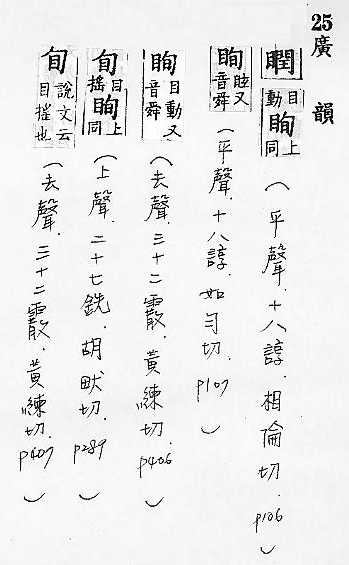 25廣韻
瞤目動眴上同(平聲.十八諄.相倫切.p106)
眴眩又音舜(平聲.十八諄.如勻切.p107)
眴目動又音舜(去聲.三十二霰.黃練切.p406)
旬目搖眴上同(上聲.二十七銑.胡畎切.p289)
旬說文云目搖也(去聲.三十二霰.黃練切.p407)